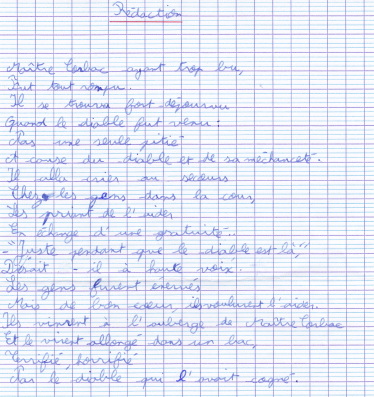 Rédaction
Maître Corbac ayant trop bu,
Fut tout rompu.
Il se trouva fort dépourvu
Quand le diable fut venu :
Pas une seule pitié
A cause du diable et de sa méchanceté.
Il alla crier au secours
Chez les gens dans la cour,
Les priant de l'aider
En échange d'une gratuité...
-"Juste pendant que le diable est là,"
Disait-il à haute voix.
Les gens furent énervés
Mais de bon cœur, ils voulurent l'aider.
Ils vinrent à l'auberge de Maître Corbac
Et le virent allongé dans un bac,
Terrifié, horrifié
Par le diable qui l'avait cogné.